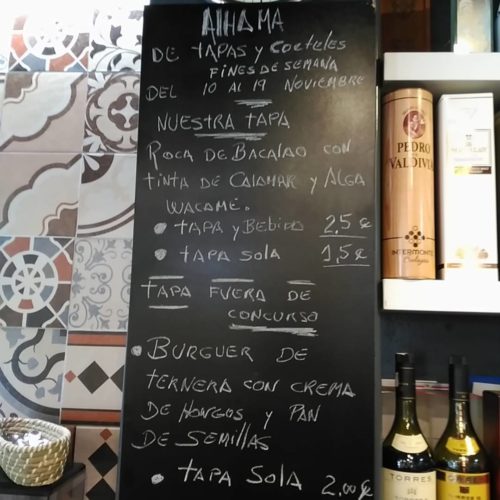 AlHAMA
DE TAPAS y COCTELES
FINES DE SEMANA
DEL 10 AL 19 NOVIEMBRE
NUESTRA TAPA
ROCA DE BACALAO CON
TINTA DE CALAMAR y ALGA
WACAMÉ.
• TAPA y BEBIDA 2,5 €
• TAPA SOLA 1,5 €
TAPA FUERA DE
CONCURSO
• BURGUER DE
TERNERA CON CREMA
DE HONGOS y PAN
DE SEMILLAS
• TAPA SOLA 2,00 €
PEDRO
DE
VALDIVIA
INTERMONTE
Bodegas
TORRES